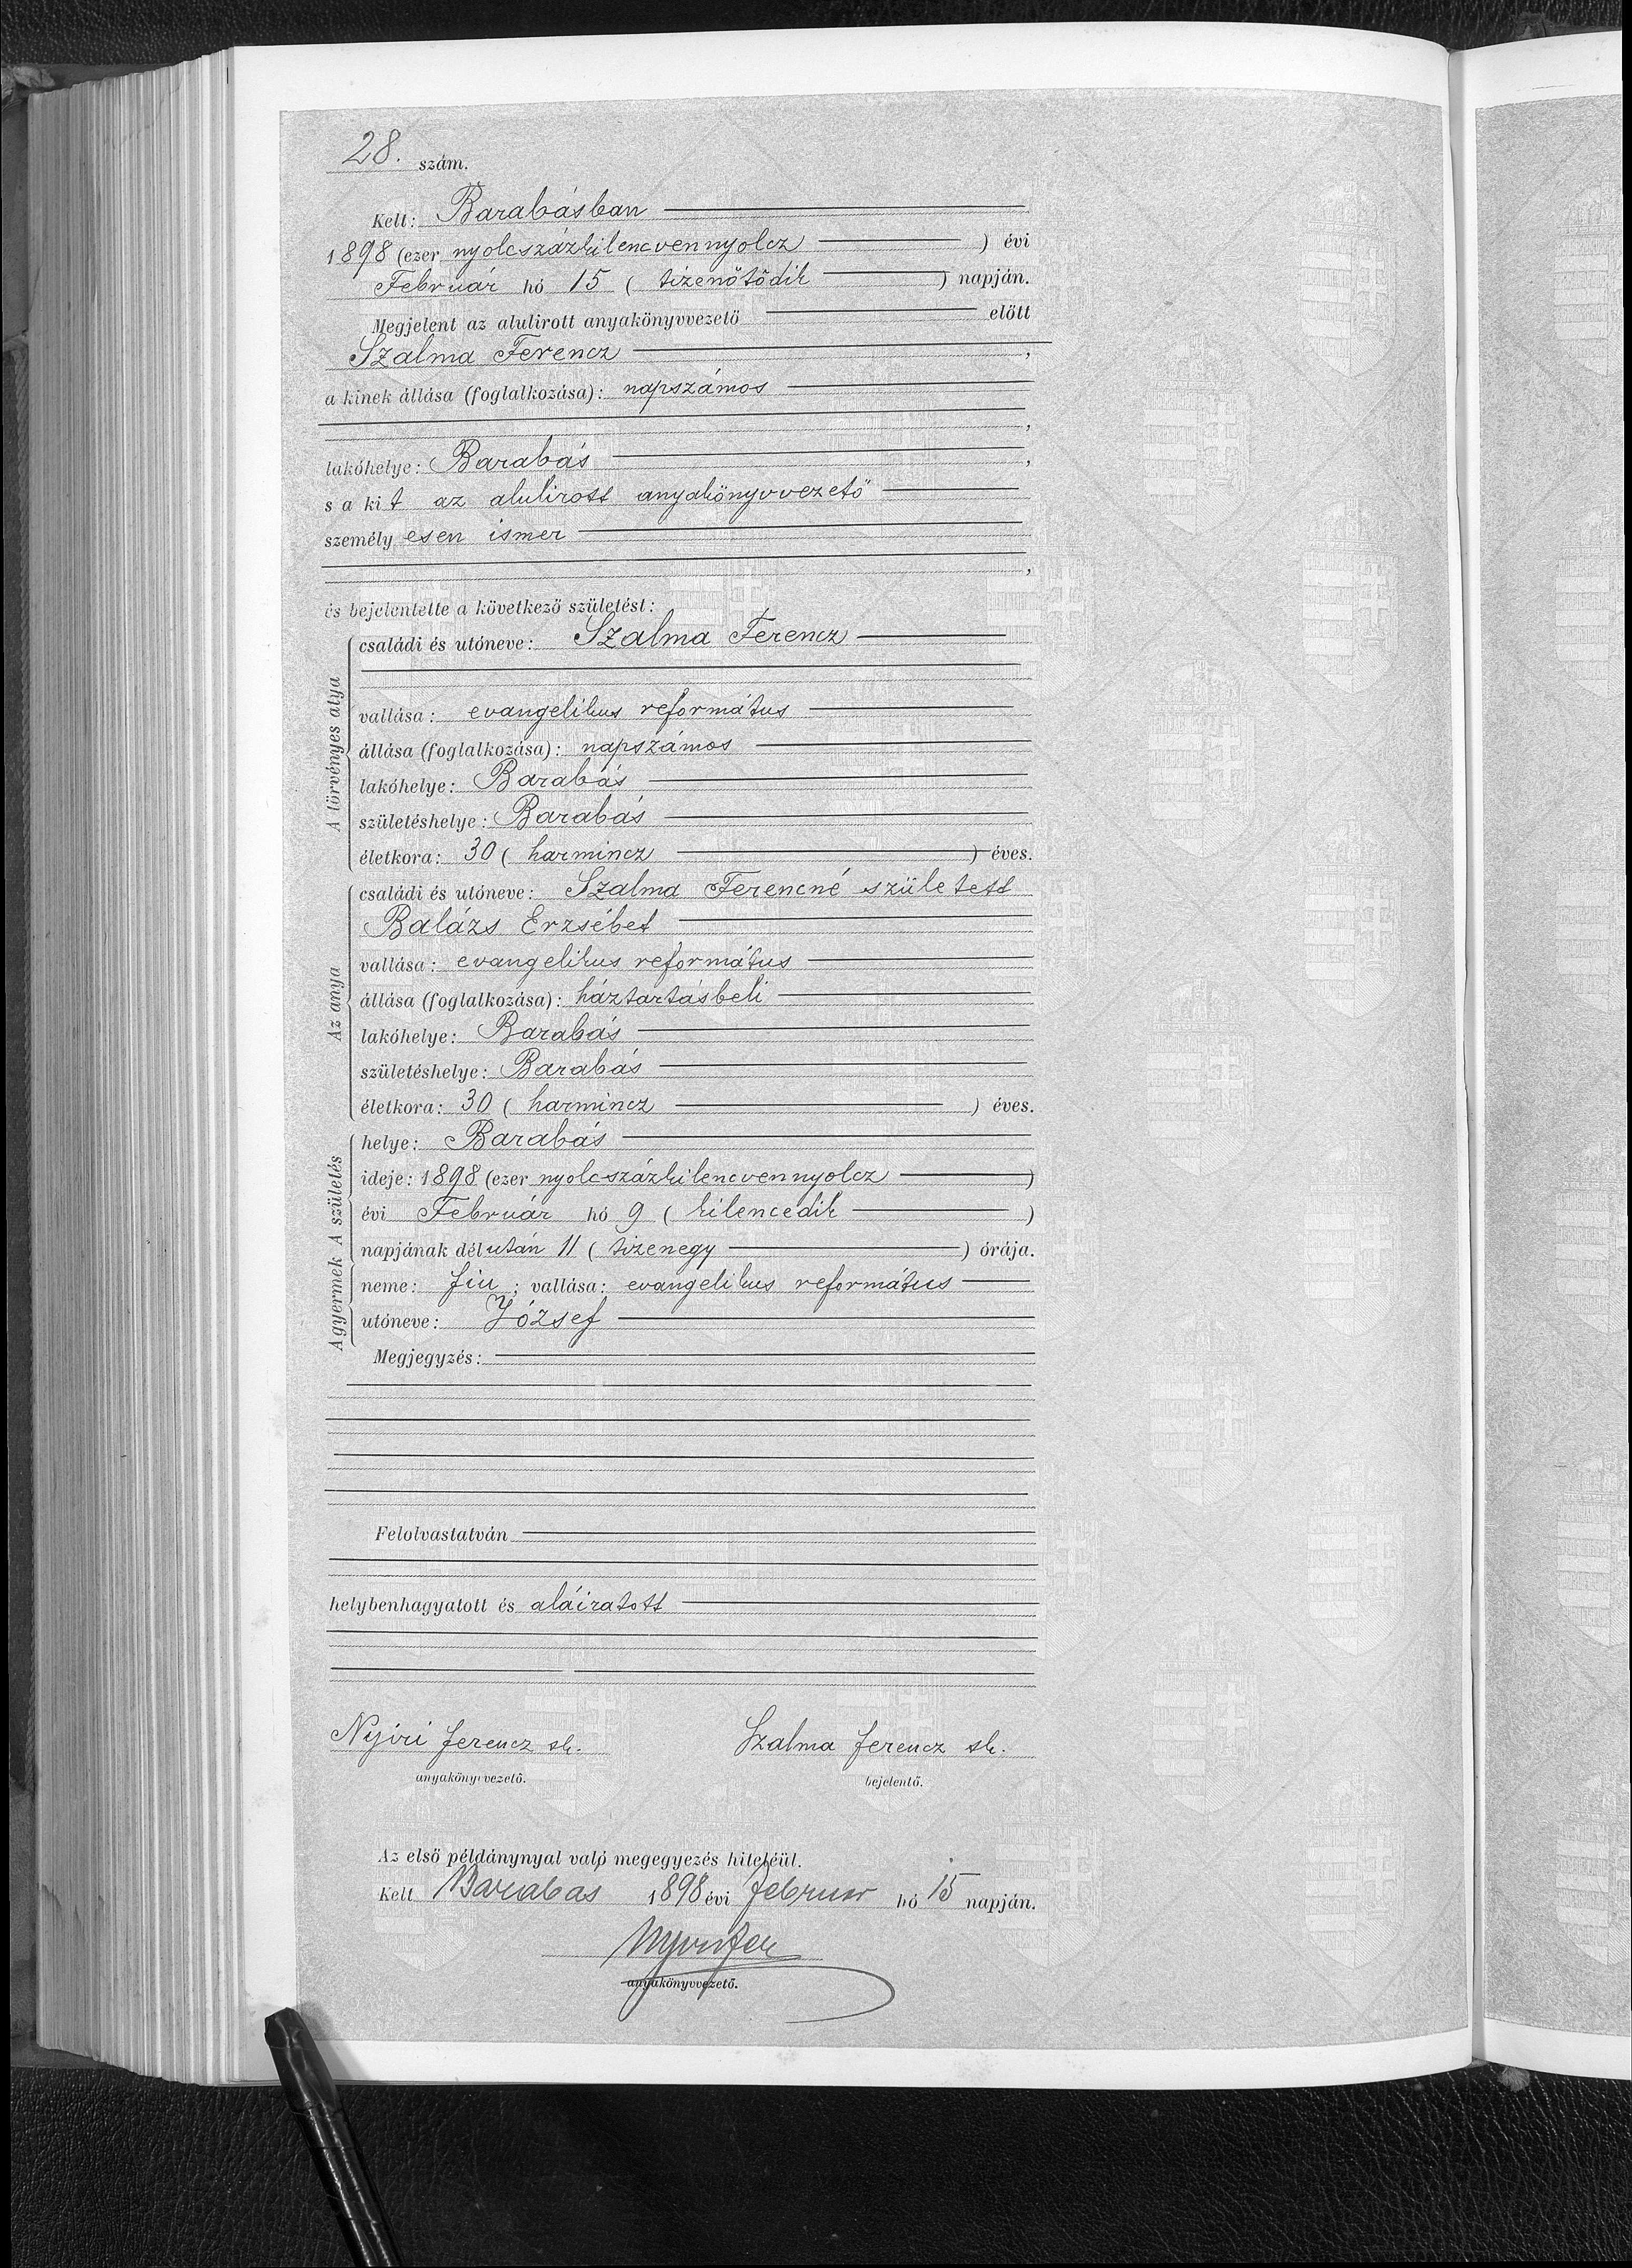 28. szám.
Kelt: Barabásban
1898 (ezer nyolcszázkilencvennyolcz ) évi
Február hó 15 ( tizenötödik ) napján.
Megjelent az alulirott anyakönyvvezető előtt
Szalma Ferencz ,
a kinek állása (foglalkozása): napszámos
,
lakóhelye: Barabás ,
s a kit az alulirott anyakönyvvezető
személyesen ismer
,
és bejelentette a következő születést:
A törvényes atya
családi és utóneve: Szalma Ferencz
vallása: evangelikus református
állása (foglalkozása): napszámos
lakóhelye: Barabás
születéshelye: Barabás
életkora: 30 ( harmincz ) éves.
Az anya
családi és utóneve: Szalma Ferencné született
Balázs Erzsébet
vallása: evangelikus református
állása (foglalkozása): háztartásbeli
lakóhelye: Barabás
születéshelye: Barabás
életkora: 30 ( harmincz ) éves.
A születés
helye: Barabás
ideje: 1898 (ezer nyolcszázkilencvennyolcz )
évi Február hó 9 ( kilencedik )
napjának délután 11 ( tizenegy ) órája.
A gyermek
neme: fiu ; vallása: evangelikus református
utóneve: József
Megjegyzés:
Felolvastatván
helybenhagyatott és aláiratott
Nyiri Ferencz sk. Szalma Ferencz sk.
anyakönyvvezető. bejelentő.
Az első példánynyal való megegyezés hiteléül.
Kelt Barabas 1898 évi Februar hó 15 napján.
anyakönyvvezető.